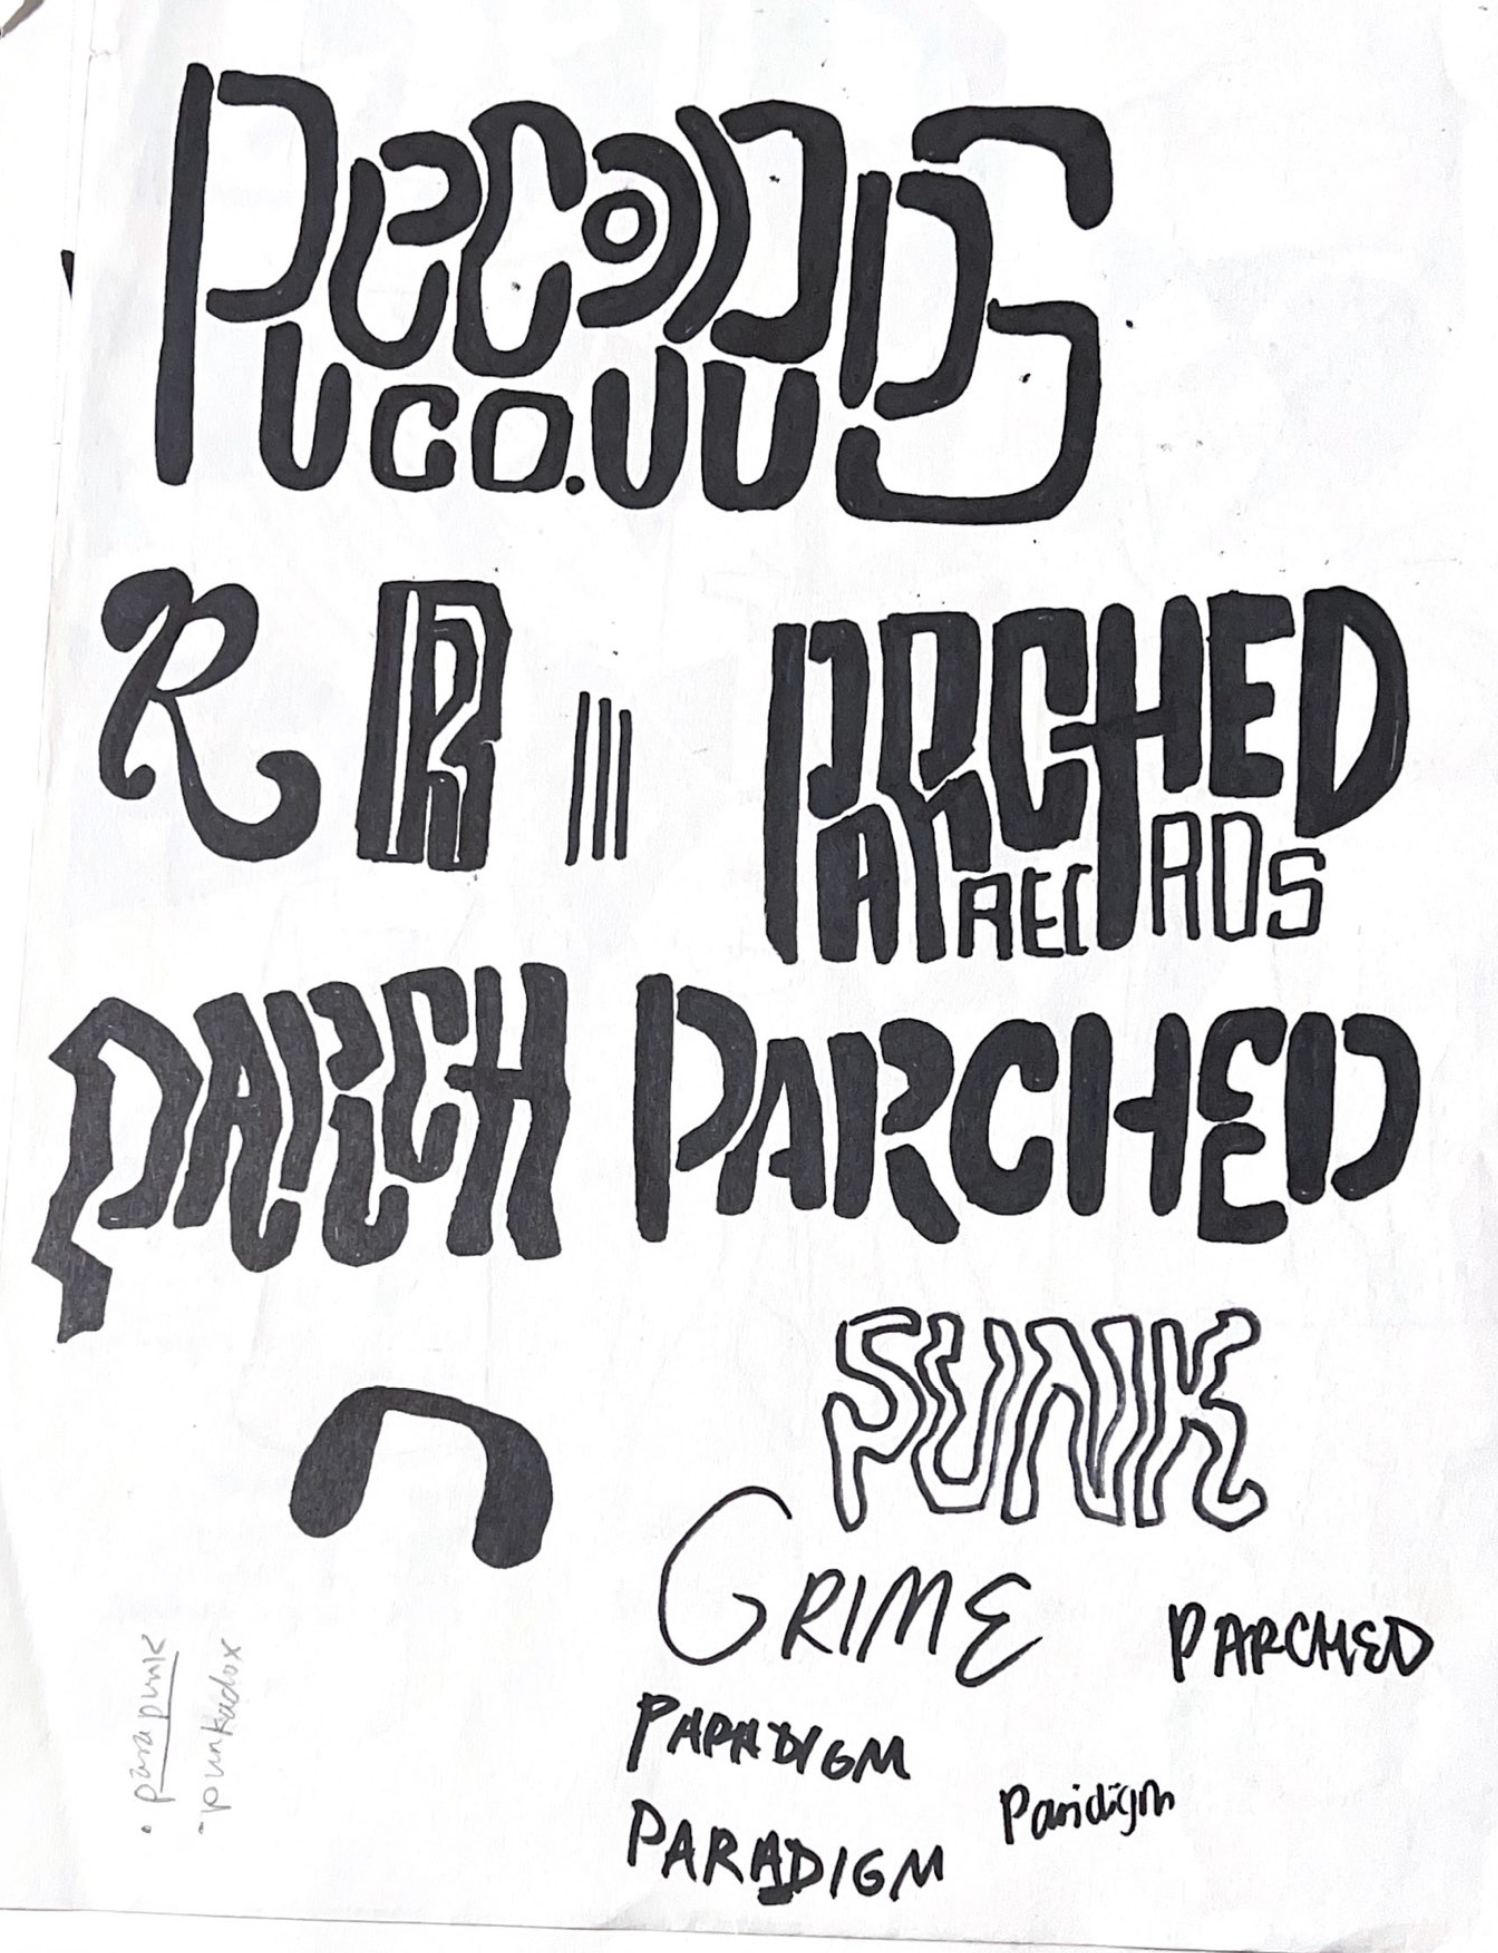 RECORDS
CO.
R R
PARCHED
RECRDS
PARCH PARCHED
PUNK
GRIME
PARCHED
PARADIGM
Paridigm
PARADIGM
• parapunk
- punkadox